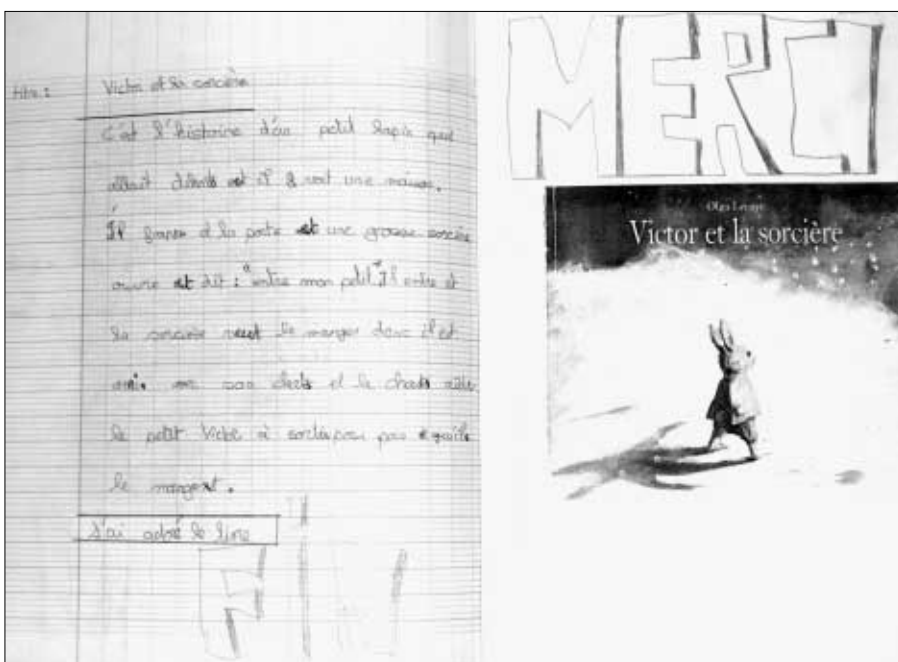 titre : Victor et la sorcière
C'est l'histoire d'un petit lapin qui
allait dehors et il voit une maison.
Il sonne à la porte et une grosse sorcière
ouvre et dit : "entre mon petit" Il entre et
la sorcière veut le manger donc il et
ami. avec son chats et le chats aide
le petit Victor à sortir pour pas
le mangent.
J'ai adoré le livre
FIN
MERCI
Olga Lecaye
Victor et la sorcière